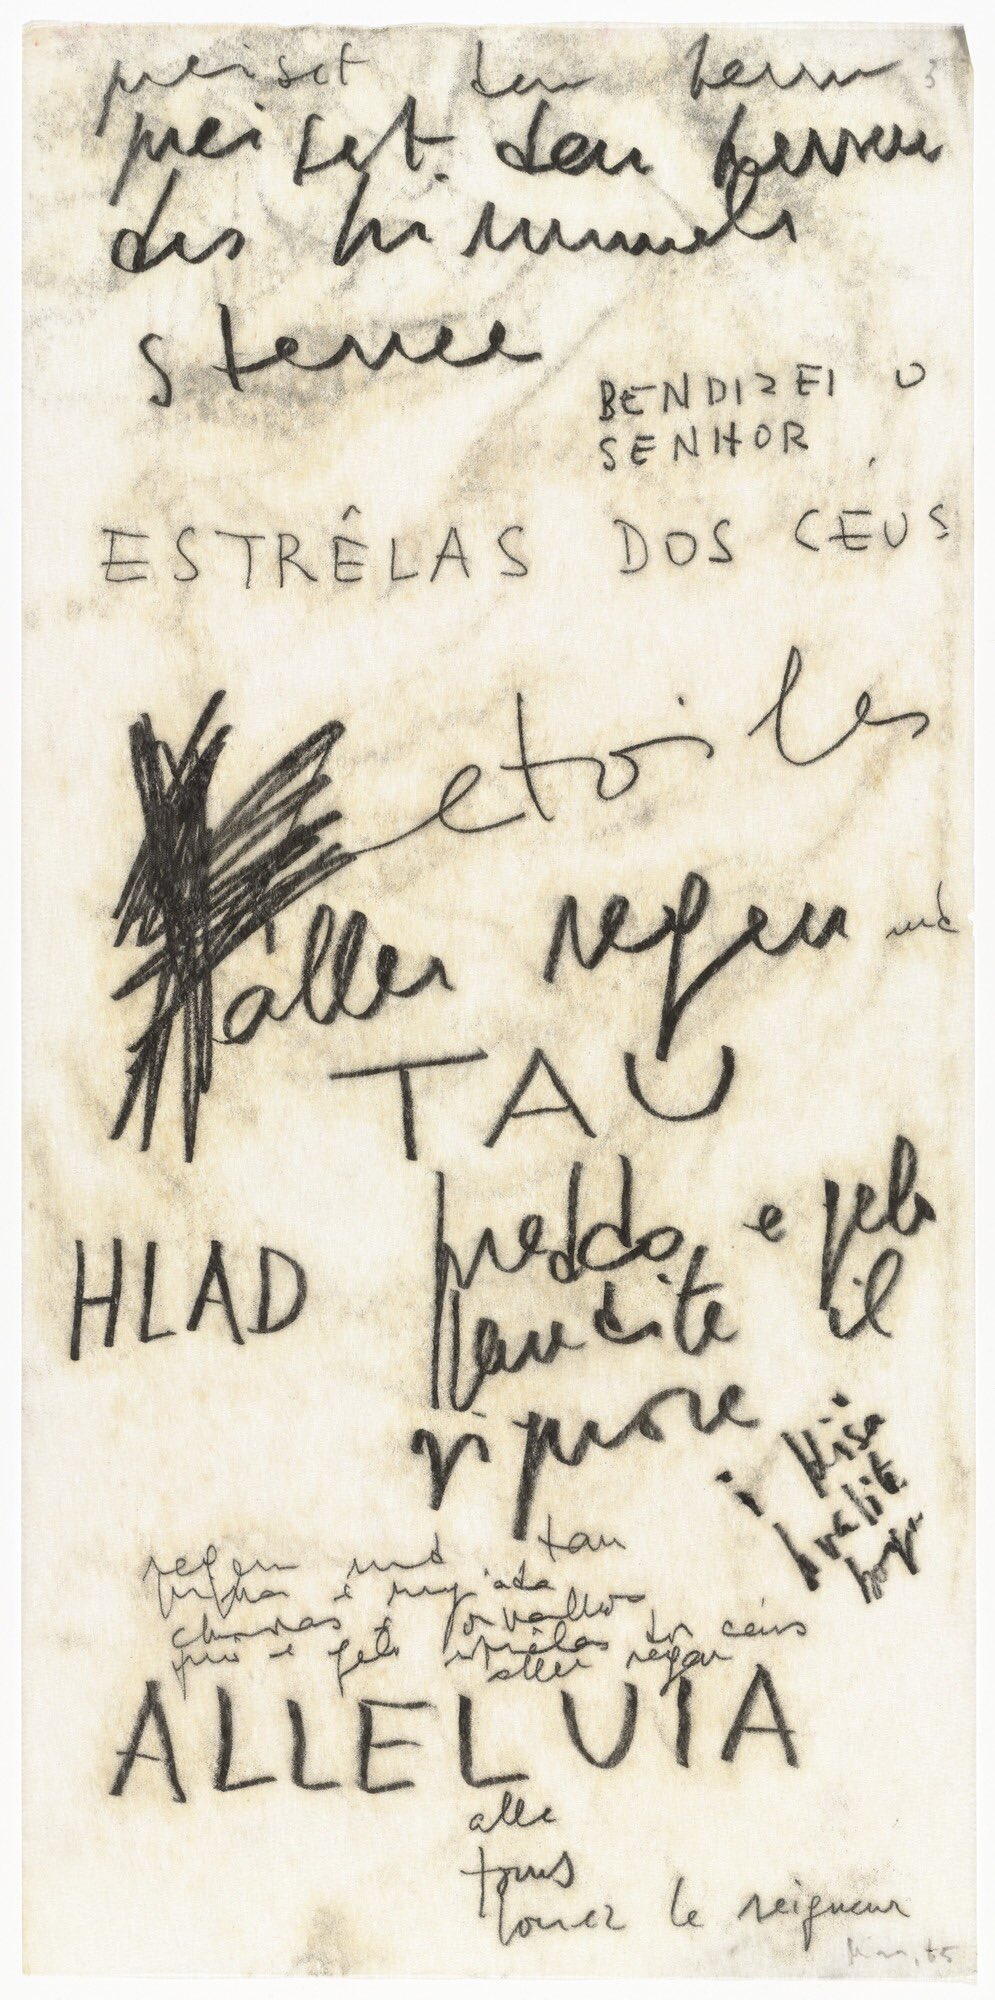 preiset den herrn 3
preiset den herren
des himmels
sterne
BENDIZEI O
SENHOR
ESTRÊLAS DOS CEUS
etoiles
aller regen und
TAU
HLAD
freddo e gelo
laudite il
signore
i kiša
hvalite
boga
regen und tau
e rugiada
chuvas e orvalhos
e gelo estrêlas dos céus
aller regen
ALLELUIA
alle
tous
louez le seigneur
Mira, 65